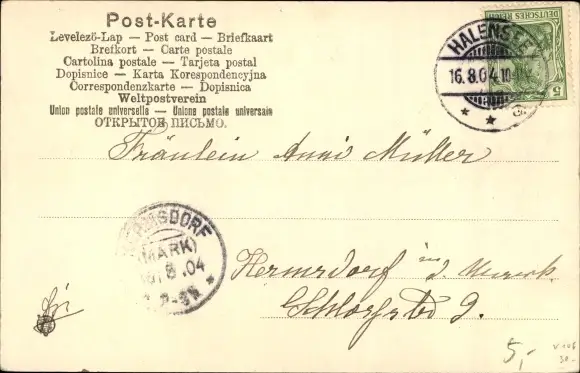 Post-Karte
Levelező-Lap — Post card — Briefkaart
Brefkort — Carte postale
Cartolina postale — Tarjeta postal
Dopisnice — Karta Korespondencyjna
Correspondenzkarte — Dopisnica
Weltpostverein
Union postale universelle — Unione postale universale
ОТКРЫТОЕ ПИСЬМО.
HALENSEE
16.8.04
DEUTSCHES REICH
5
Fräulein Anni Müller
HERMSDORF
(MARK)
8.04
Hermsdorf in d. Mark
9.
5,-